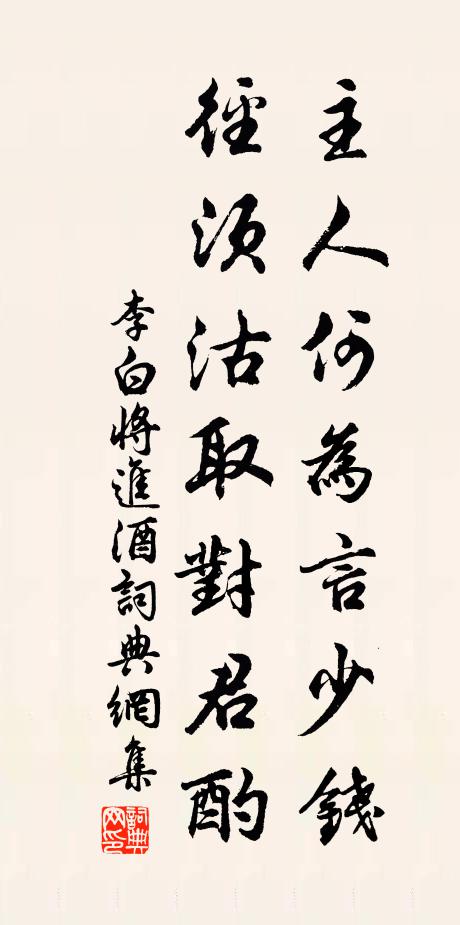 主人何為言少錢
徑須沽取對君酌
李白將進酒詞典網集
詞典
网印